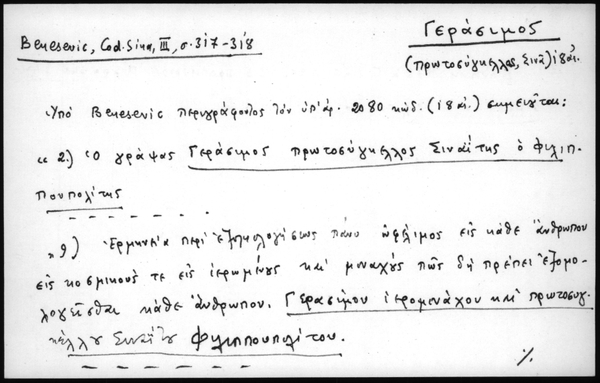 Γεράσιμος
Benesevic, Cod. Sina, III, σ. 317-318
(πρωτοσύγκελλος, Σινᾶ) ι8 αἰ.
Ὑπὸ Benesevic περιγράφοντος τὸν ὑπ' ἀρ. 2080 κώδ. (ι8 αἰ.) σημειοῦται:
« 2.) Ὁ γράψας Γεράσιμος πρωτοσύγκελλος Σιναΐτης ὁ Φιλιπ-
πουπολίτης
„ 9) Ἑρμηνεία περὶ ἐξομολογήσεως πάνυ ὠφέλιμος εἰς κάθε ἄνθρωπον
εἰς κοσμικούς τε εἰς ἱερωμένους καὶ μοναχούς πῶς δὴ πρέπει ἐξομο-
λογεῖσθαι κάθε ἄνθρωπον. Γερασίμου ἱερομονάχου καὶ πρωτοσυγ-
κέλλου Σιναΐτου Φιλιππουπολίτου.
./.